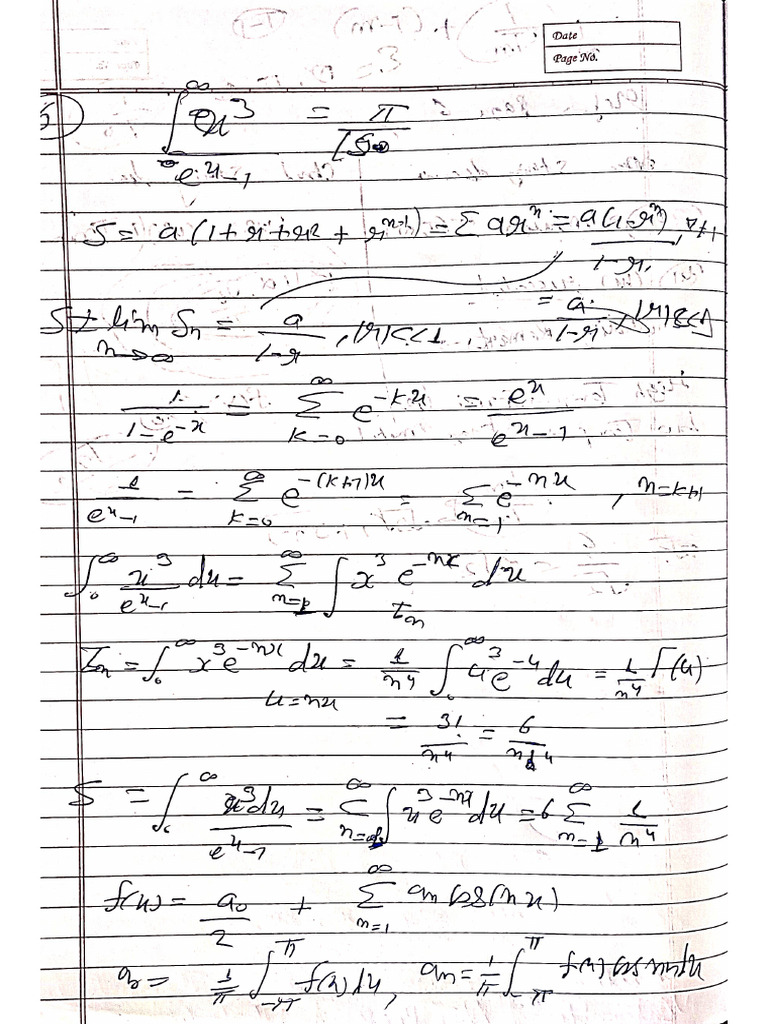 Date
Page No.
∫₀^∞ x³/(e^x-1) = π/15
S = a(1+r+r2+r^(n-1)) = Σ ar^n = a(1-r^n)/(1-r), r≠1
S = lim_(n→∞) Sn = a/(1-r), |r|<1, = a/(1-r)
1/(1-e^-x) = Σ_(k=0)^∞ e^-kx = e^x/(e^x-1)
1/(e^x-1) = Σ_(k=0)^∞ e^-(k+1)x = Σ_(n=1) e^-nx, n=k+1
∫₀^∞ x³/(e^x-1) dx = Σ_(n=1)^∞ ∫ x³ e^-nx dx
In
In = ∫₀^∞ x³e^-nx dx = 1/n⁴ ∫₀^∞ u³e^-u du = 1/n⁴ Γ(4)
u=nx
= 3!/n⁴ = 6/n⁴
S = ∫₀^∞ x³dx/(e^x-1) = Σ_(n=1)^∞ ∫ x³e^-nx dx = 6 Σ_(n=1)^∞ 1/n⁴
f(x) = a₀/2 + Σ_(n=1)^∞ an cos(nx)
a₀ = 1/π ∫_(-π)^π f(x)dx, an = 1/π ∫_(-π)^π f(x) cosnxdx